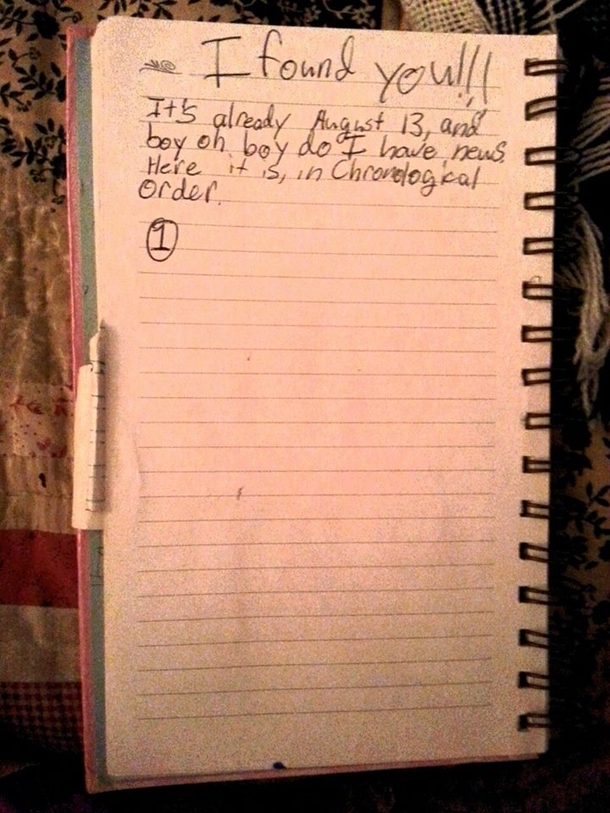 I found you!!!!
It's already August 13, and
boy oh boy do I have news.
Here it is, in Chronological
Order.
1